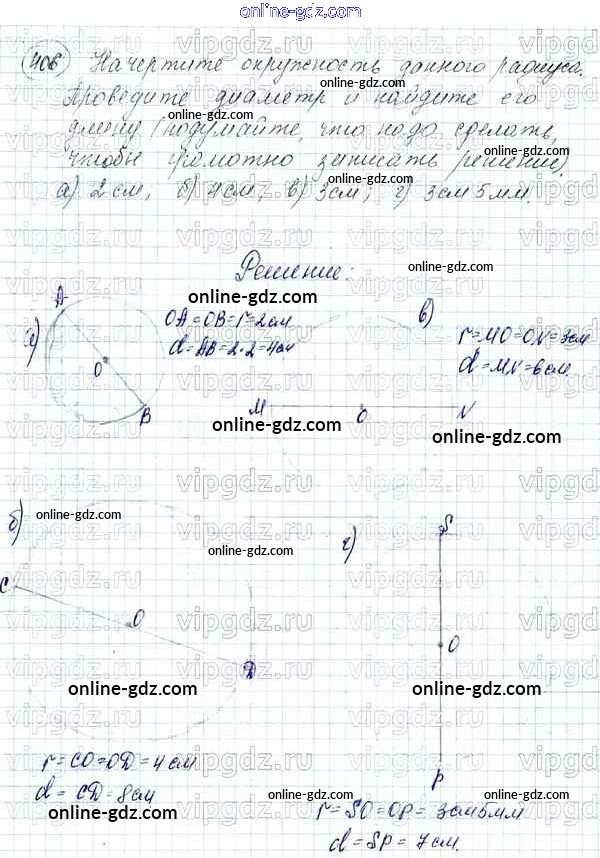 online-gdz.com
406 Начертите окружность данного радиуса.
Проведите диаметр и найдите его
длину (подумайте, что надо сделать,
чтобы грамотно записать решение).
а) 2 см, б) 4 см, в) 3 см; г) 3 см 5 мм.
Решение:
а)
A
O
B
OA=OB=r=2см
d=AB=2·2=4см
в)
r=MO=ON=3см
d=MN=6см.
M O N
б)
C
O
D
r=CO=OD=4см
d=CD=8см
г)
S
O
P
r=SO=OP=3см5мм
d=SP=7см.
vipgdz.ru
online-gdz.com